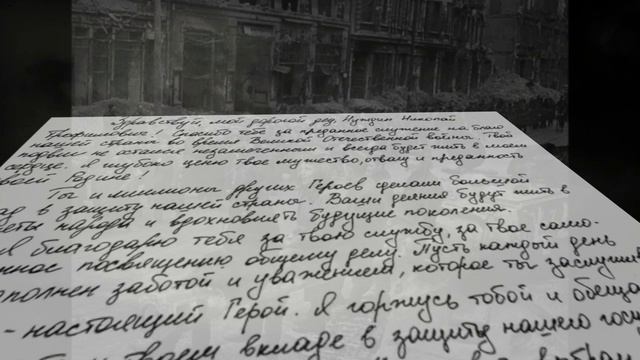 Здравствуй, мой дорогой дед, Нуждин Николай
Трофимович! Спасибо тебе за преданное служение на благо
нашей страны во время Великой Отечественной войны. Твой
подвиг не остался незамеченным и всегда будет жить в моем
сердце. Я глубоко ценю твое мужество, отвагу и преданность
своей Родине!
Ты и миллионы других Героев сделали большой
ад в защиту нашей страны. Ваши деяния будут жить в
народа и вдохновлять будущие поколения.
Я благодарю тебя за твою службу, за твое само-
нное посвящению общему делу. Пусть каждый день
аполнен заботой и уважением, которое ты заслужив
- настоящий Герой. Я горжусь тобой и обеща
вашем вкладе в защиту нашего гос